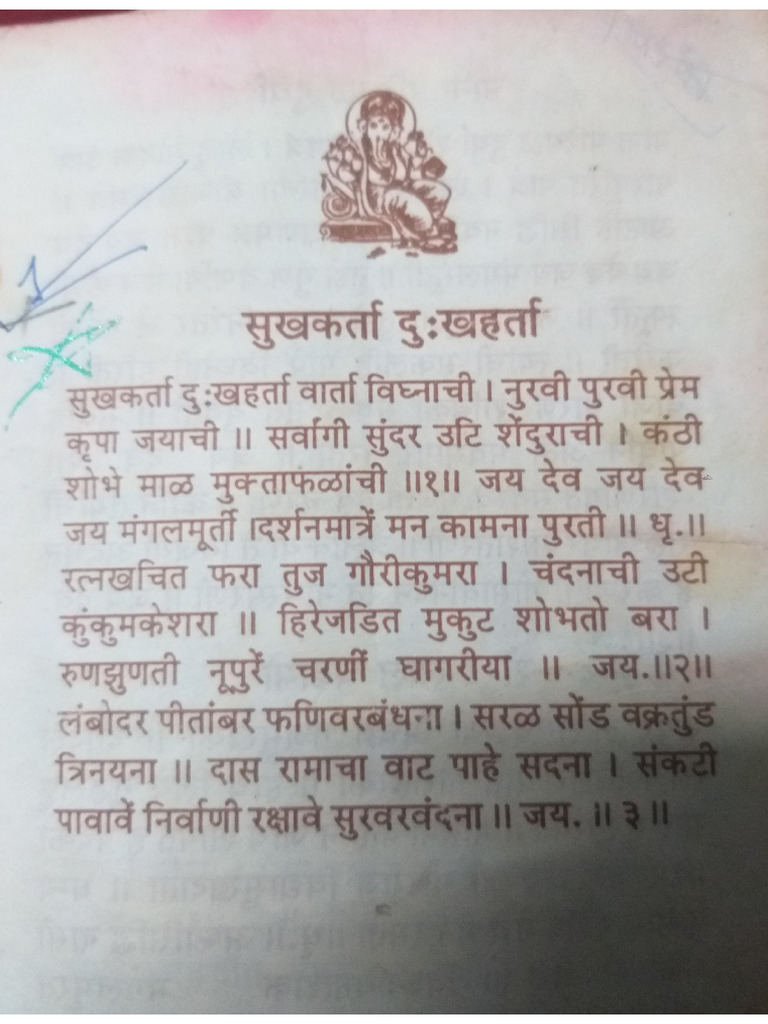 सुखकर्ता दु:खहर्ता
सुखकर्ता दु:खहर्ता वार्ता विघ्नाची । नुरवी पुरवी प्रेम
कृपा जयाची ॥ सर्वागी सुंदर उटि शेंदुराची । कंठी
शोभे माळ मुक्ताफळांची ॥१॥ जय देव जय देव
जय मंगलमूर्ती ।दर्शनमात्रें मन कामना पुरती ॥ धृ.॥
रत्नखचित फरा तुज गौरीकुमरा । चंदनाची उटी
कुंकुमकेशरा ॥ हिरेजडित मुकुट शोभतो बरा ।
रुणझुणती नूपुरें चरणीं घागरीया ॥ जय.॥२॥
लंबोदर पीतांबर फणिवरबंधना । सरळ सोंड वक्रतुंड
त्रिनयना ॥ दास रामाचा वाट पाहे सदना । संकटी
पावावें निर्वाणी रक्षावे सुरवरवंदना ॥ जय. ॥ ३ ॥